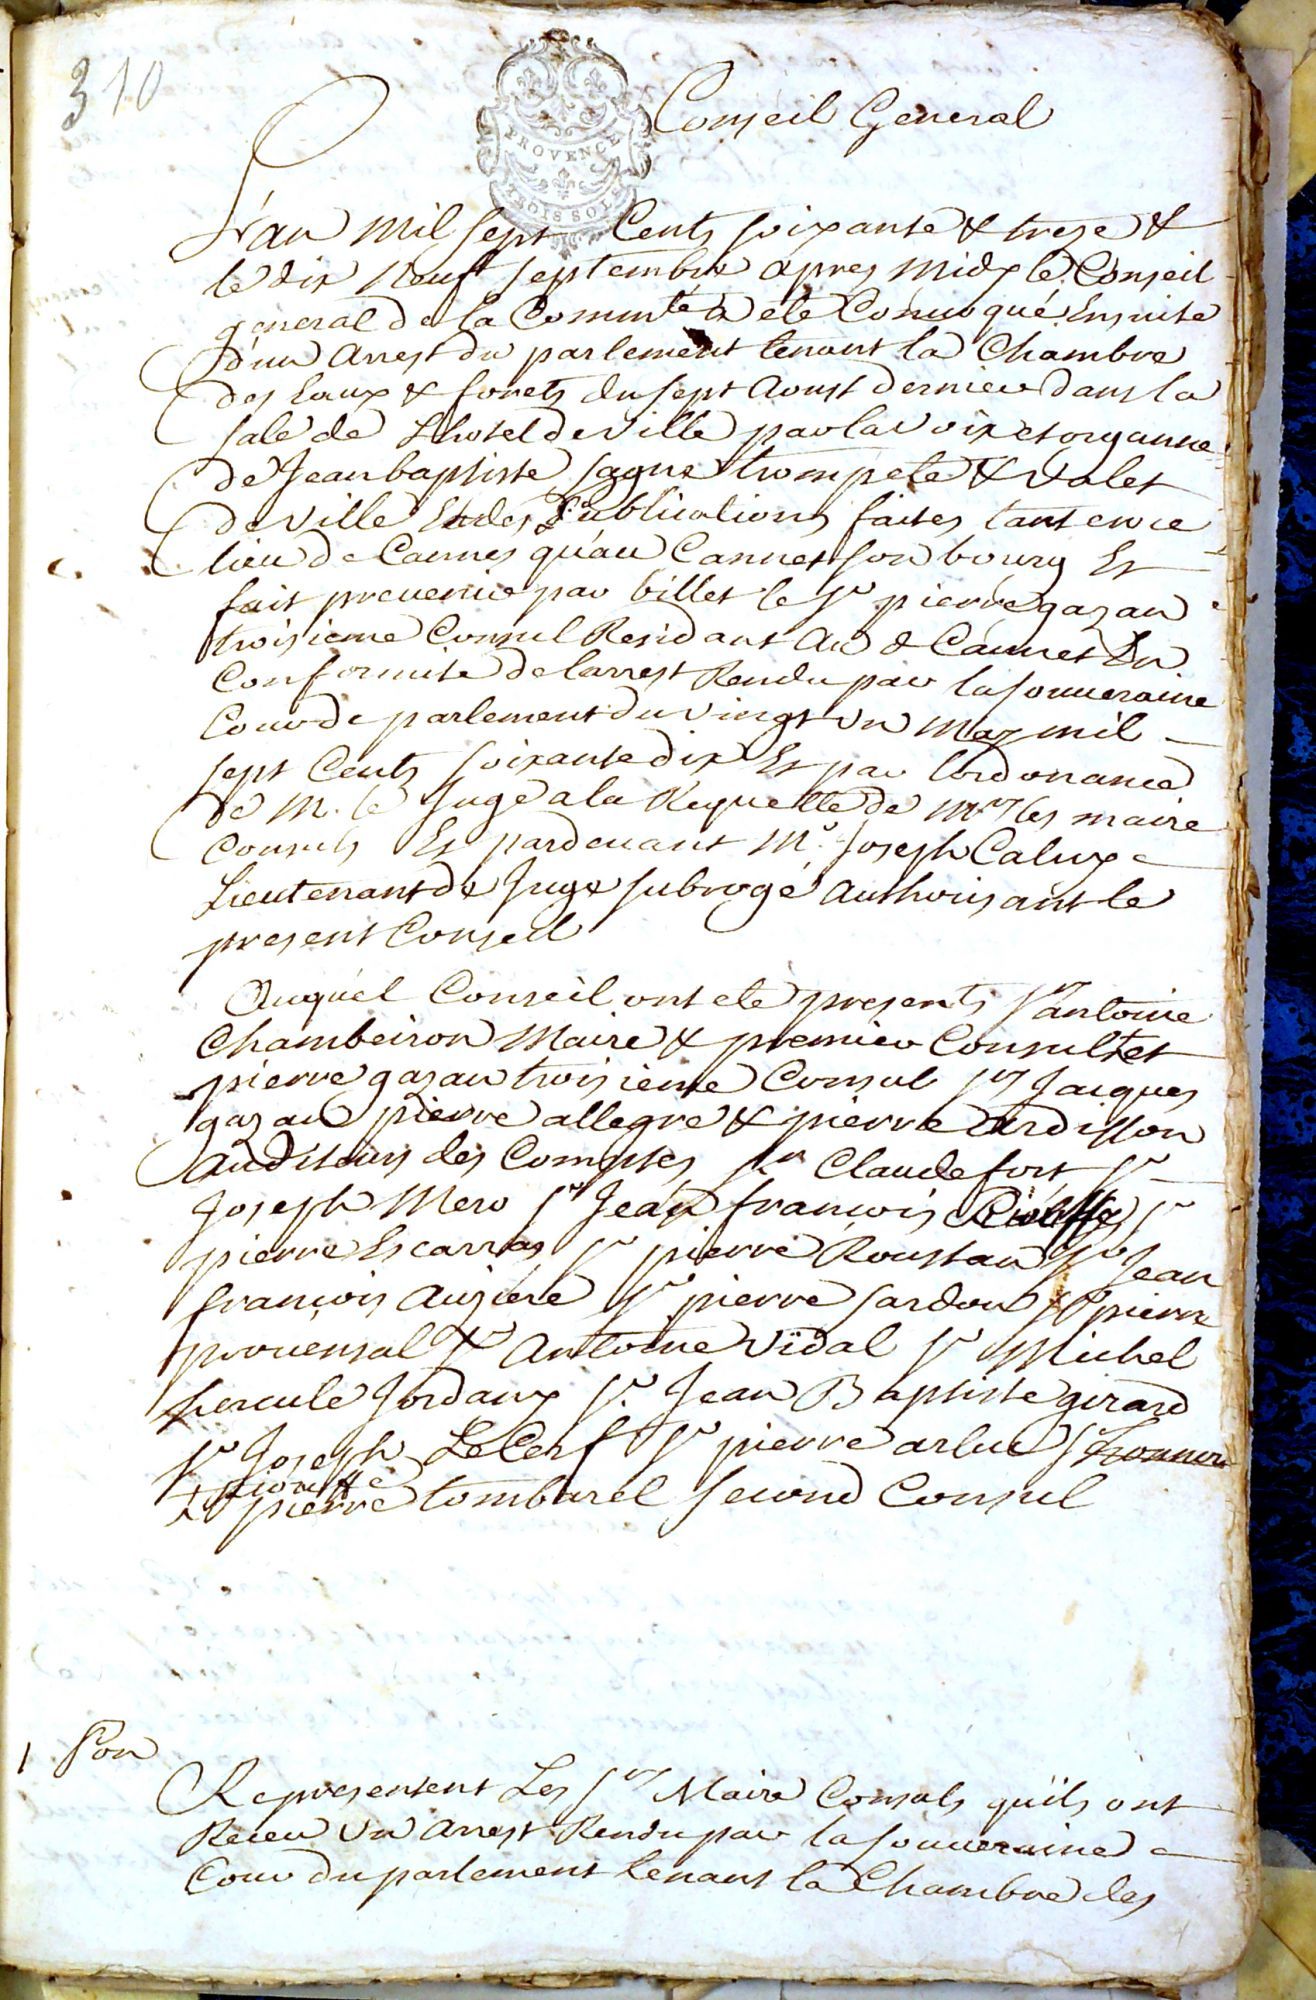 310
PROVENCE
TROIS SOLS
Conseil General
L'an mil sept Cents soixante & treze &
le dix neuf septembre apres midy le Conseil
general de la Commte a eté Convoqué Ensuite
d'un arrest du parlement tenant la Chambre
des Eaux & forets du sept aoust dernier dans la
sale de Lhotel de ville par la voix et organne
de Jean baptiste sagne trompete & valet
de ville Et des Publications faites tant en ce
lieu de Cannes qu'au Cannet son bourg Et
fait prevenir par billet le Sr pierre gazan
troisieme Consul Residant Au d Cannet En
Conformité de larrest Rendu par la souveraine
Cour de parlement du vingt un may mil
sept Cents soixante dix Et par lordonance
de M. le Juge a la Requette de Mrs les maire
Consuls Et pardevant Me Joseph Calvy
Lieutenant de Juge subrogé authorisant le
present Conseil
Auquel Conseil ont eté presents Sr antoine
Chambeiron Maire & premier Consul Et
pierre gazan troisieme Consul Srs Jacques
gazan pierre allegre & pierre ardisson
auditeurs des Comptes Sr Claude fort Sr
Joseph Mero Sr Jean françois Sr
pierre Escarras Sr pierre Roustan Sr Jean
françois auziere Sr pierre sardou Sr pierre
provensal Sr Antoine vidal Sr Michel
hercule Jordany Sr Jean Baptiste girard
Sr Joseph LeCerf Sr pierre arluc Sr honnore
riouffe
& pierre tombarel second Consul
1 Pon
Representent Les Srs Maire Consuls qu'ils ont
Receu un arrest Rendu par la souveraine
Cour du parlement tenant la Chambre des